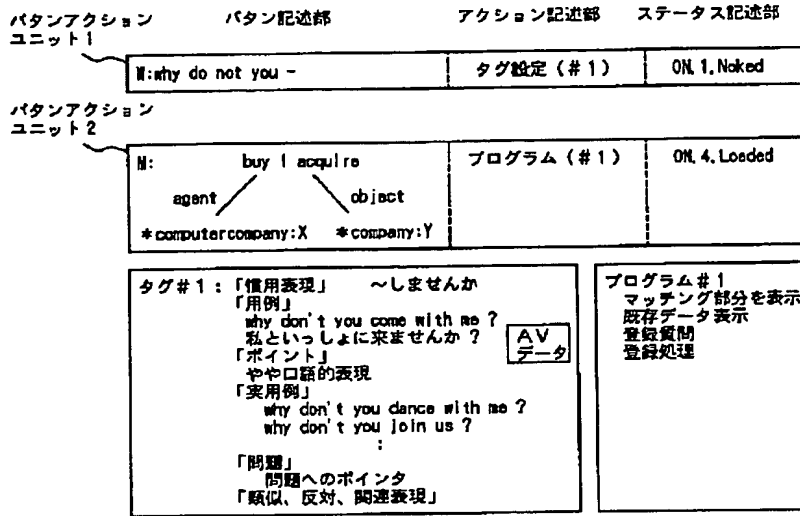 パタンアクション
ユニット1
パタン記述部 アクション記述部 ステータス記述部
M:why do not you - タグ設定(#1) ON,1,Naked
パタンアクション
ユニット2
M: buy | acquire プログラム(#1) ON,4,Loaded
agent object
*computercompany:X *company:Y
タグ#1:「慣用表現」 ~しませんか
「用例」
why don't you come with me ?
私といっしょに来ませんか?
AV
データ
「ポイント」
やや口語的表現
「実用例」
why don't you dance with me ?
why don't you join us ?
:
「問題」
問題へのポインタ
「類似、反対、関連表現」
プログラム#1
マッチング部分を表示
既存データ表示
登録質問
登録処理